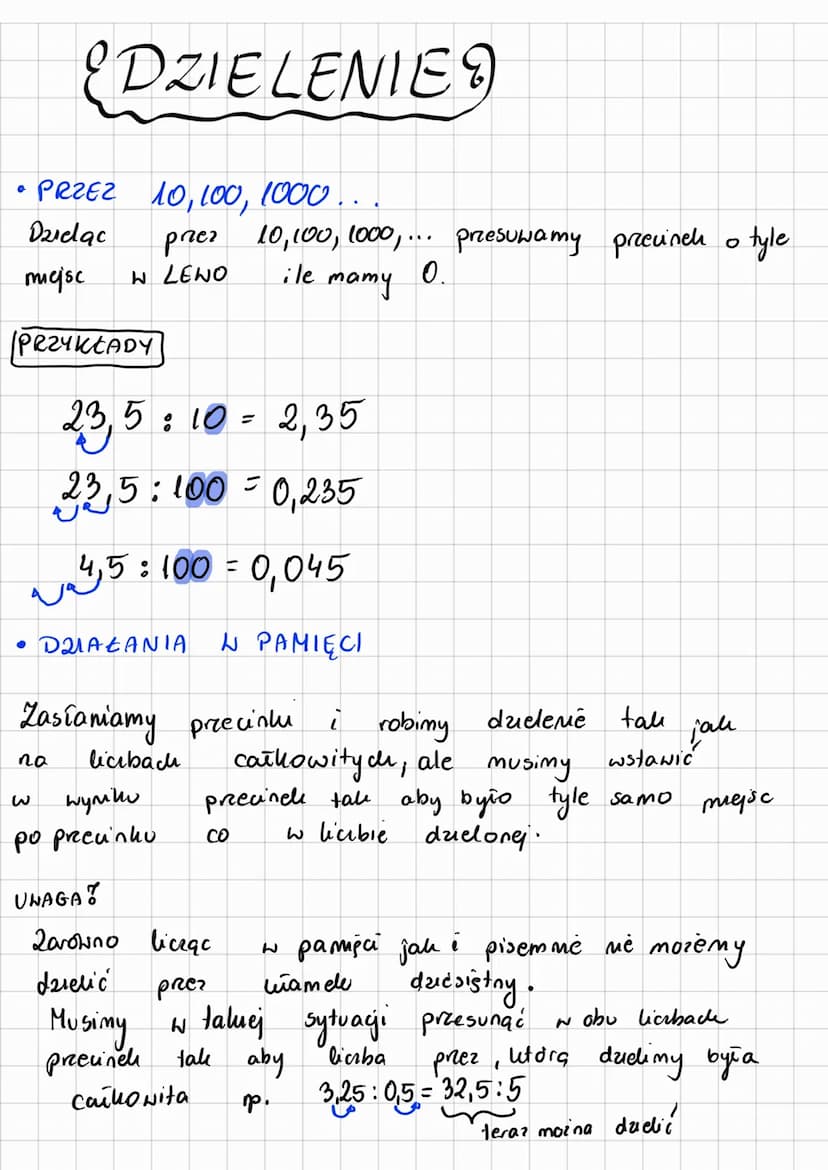 DZIELENIE
• PRZEZ 10,100,1000...
Dzieląc przez 10,100,1000,... przesuwamy przecinek o tyle
miejsc w LEWO ile mamy 0.
PRZYKŁADY
23,5 : 10 = 2,35
23,5 : 100 = 0,235
4,5 : 100 = 0,045
• DZIAŁANIA W PAMIĘCI
Zasłaniamy przecinki i robimy dzielenie tak jak
na liczbach całkowitych, ale musimy wstawić
w wyniku przecinek tak aby było tyle samo miejsc
po przecinku co w liczbie dzielonej.
UWAGA!
Zarówno licząc w pamięci jak i pisemnie nie możemy
dzielić przez ułamek dziesiętny.
Musimy w takiej sytuacji przesunąć w obu liczbach
przecinek tak aby liczba przez, którą dzielimy była
całkowita np. 3,25 : 0,5 = 32,5 : 5
teraz można dzielić